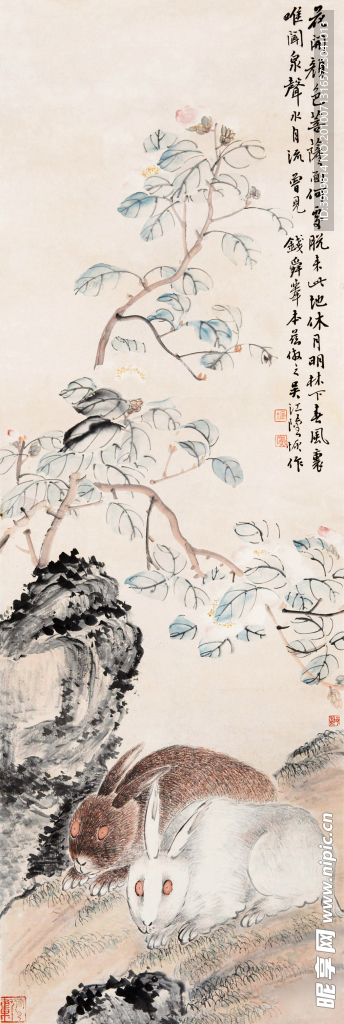 花開顏色菩薩面何處脫來此地休月明林下春風裏
唯聞泉聲水月流 曾見
錢舜舉本茲倣之吴江陸恢作
昵享网 www.nipic.cn